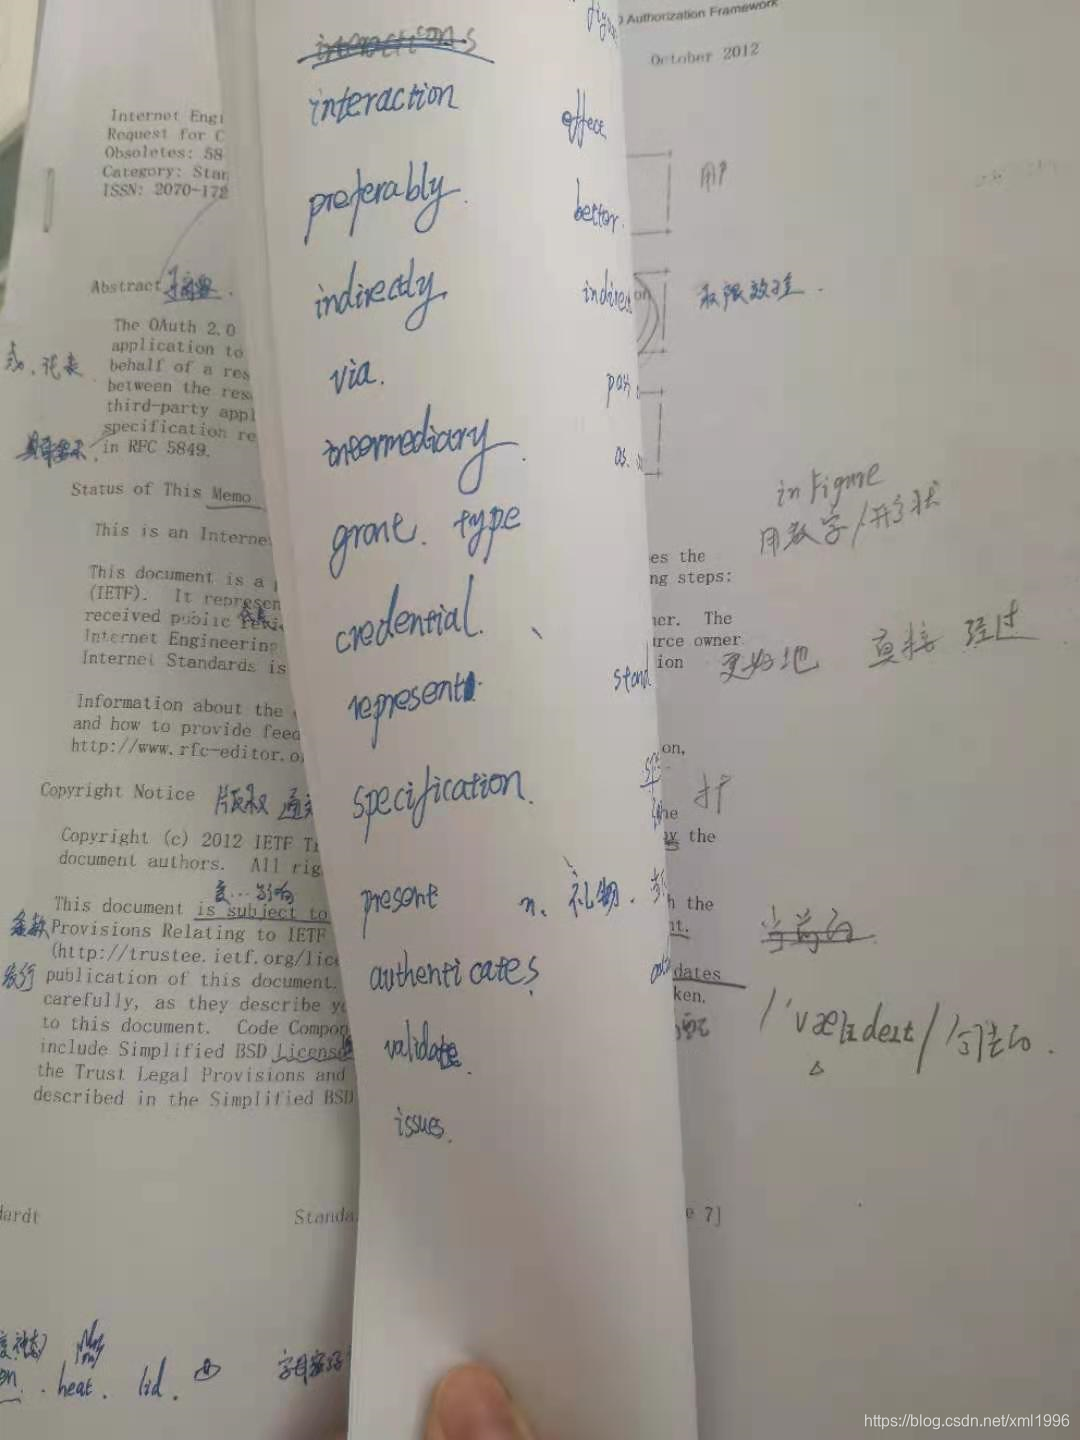 Internet Engi
Request for C
Obsoletes: 58
Category: Stan
ISSN: 2070-172
Abstract 摘要.
The OAuth 2.0
application to
代表
behalf of a res
between the res
third-party appl
specification re
in RFC 5849.
Status of This Memo
This is an Interne
This document is a
(IETF). It represen
received public revi
Internet Engineering
Internet Standards is
Information about the
and how to provide feed
http://www.rfc-editor.o
Copyright Notice 版权 通
Copyright (c) 2012 IETF Tr
document authors. All rig
受...影响
This document is subject to
条款 Provisions Relating to IETF
(http://trustee.ietf.org/lice
发行 publication of this document.
carefully, as they describe yo
to this document. Code Compon
include Simplified BSD License
the Trust Legal Provisions and
described in the Simplified BSD
dardt
Standa
heat. lid.
interaction
effect
preferably.
better.
indirectly
indirect
via.
intermediary.
as.
grant. type
credential.
represent
stand
specification.
present n. 礼物.
authenticates
validate.
issues.
Authorization Framework
October 2012
用户
权限效验.
in Figure
用数字/形状
es the
ng steps:
er. The
urce owner
ion 更好地 直接 经过
on,
the
the
h the
nt.
当前的
dates
ken.
e 7]
https://blog.csdn.net/xml1996